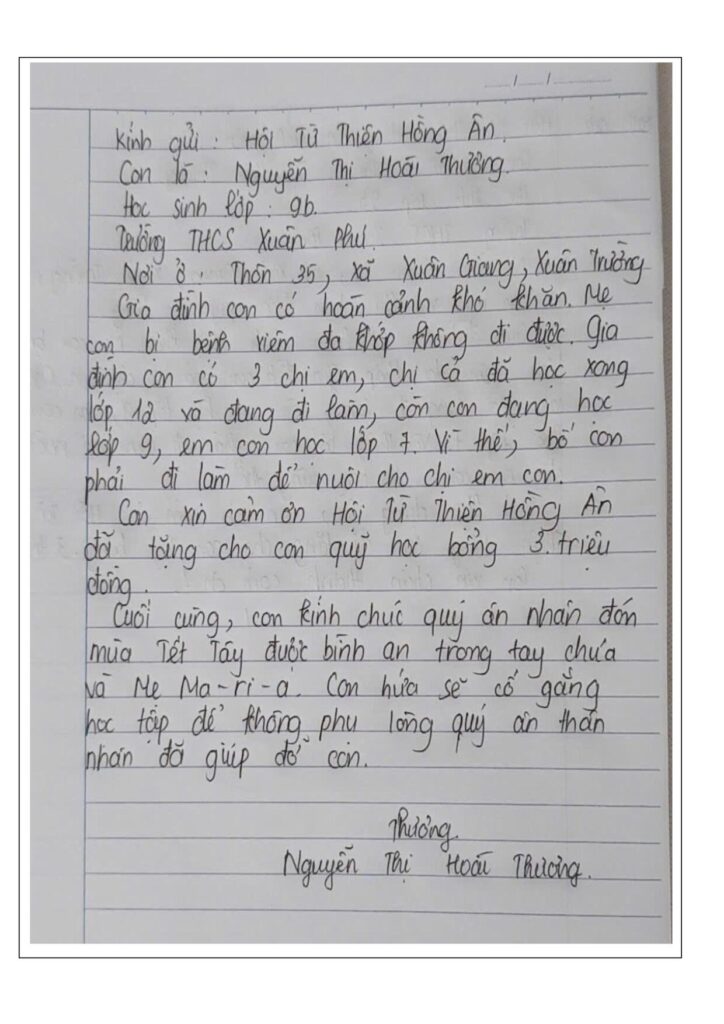 / /
Kính gửi : Hội Từ Thiện Hồng Ân.
Con là : Nguyễn Thị Hoài Thương.
Học sinh lớp : 9b.
Trường THCS Xuân Phú.
Nơi ở : Thôn 35, xã Xuân Giang, Xuân Trường
Gia đình con có hoàn cảnh khó khăn. Mẹ
con bị bệnh viêm đa khớp không đi được. Gia
đình con có 3 chị em, chị cả đã học xong
lớp 12 và đang đi làm, còn con đang học
lớp 9, em con học lớp 7. Vì thế, bố con
phải đi làm để nuôi cho chị em con.
Con xin cảm ơn Hội Từ Thiện Hồng Ân
đã tặng cho con quỹ học bổng 3 triệu
đồng.
Cuối cùng, con kính chúc quý ân nhân đón
mùa Tết Tây được bình an trong tay chưa
và Mẹ Ma-ri-a. Con hứa sẽ cố gắng
học tập để không phụ lòng quý ân thân
nhân đã giúp đỡ con.
Thương.
Nguyễn Thị Hoài Thương.